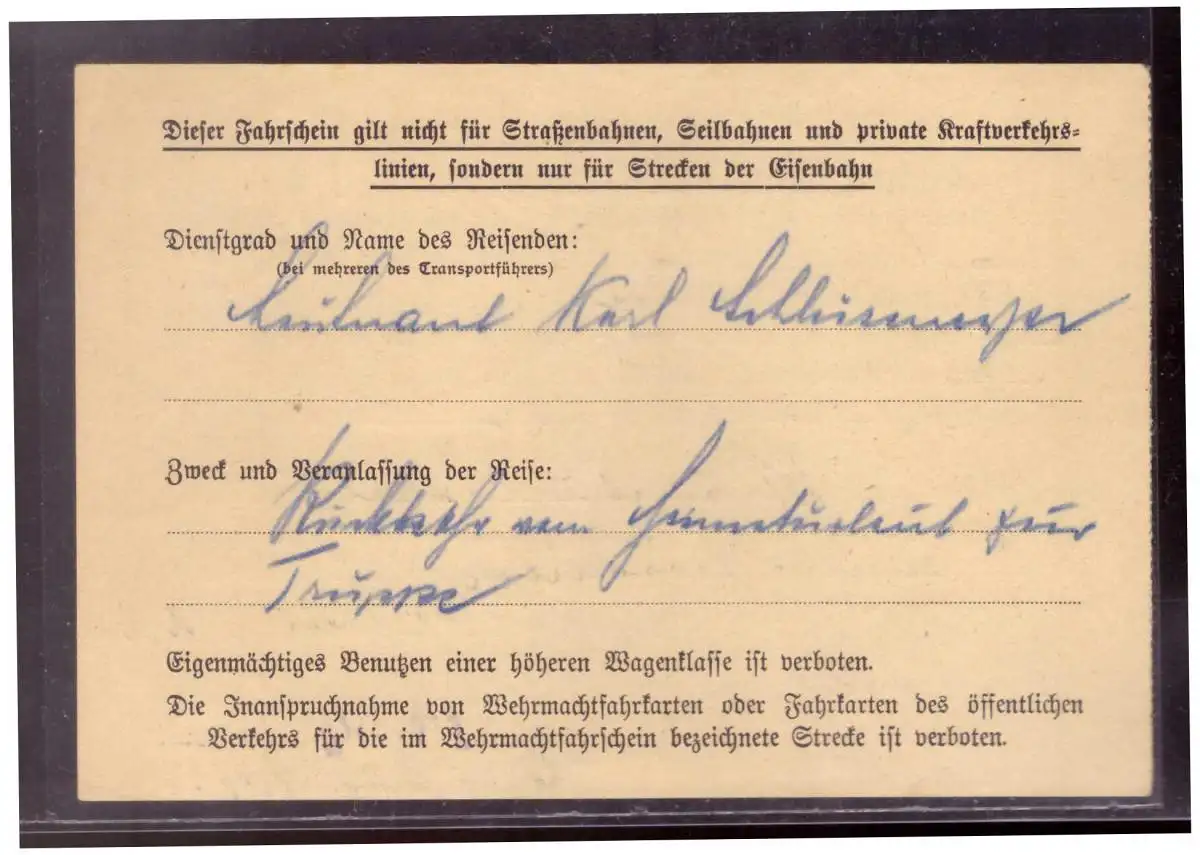 Dieser Fahrschein gilt nicht für Straßenbahnen, Seilbahnen und private Kraftverkehrs-
linien, sondern nur für Strecken der Eisenbahn
Dienstgrad und Name des Reisenden:
(bei mehreren des Transportführers)
Leutnant Karl
Zweck und Veranlassung der Reise:
Rückkehr vom Heimaturlaub zur
Truppe
Eigenmächtiges Benutzen einer höheren Wagenklasse ist verboten.
Die Inanspruchnahme von Wehrmachtfahrkarten oder Fahrkarten des öffentlichen
Verkehrs für die im Wehrmachtfahrschein bezeichnete Strecke ist verboten.